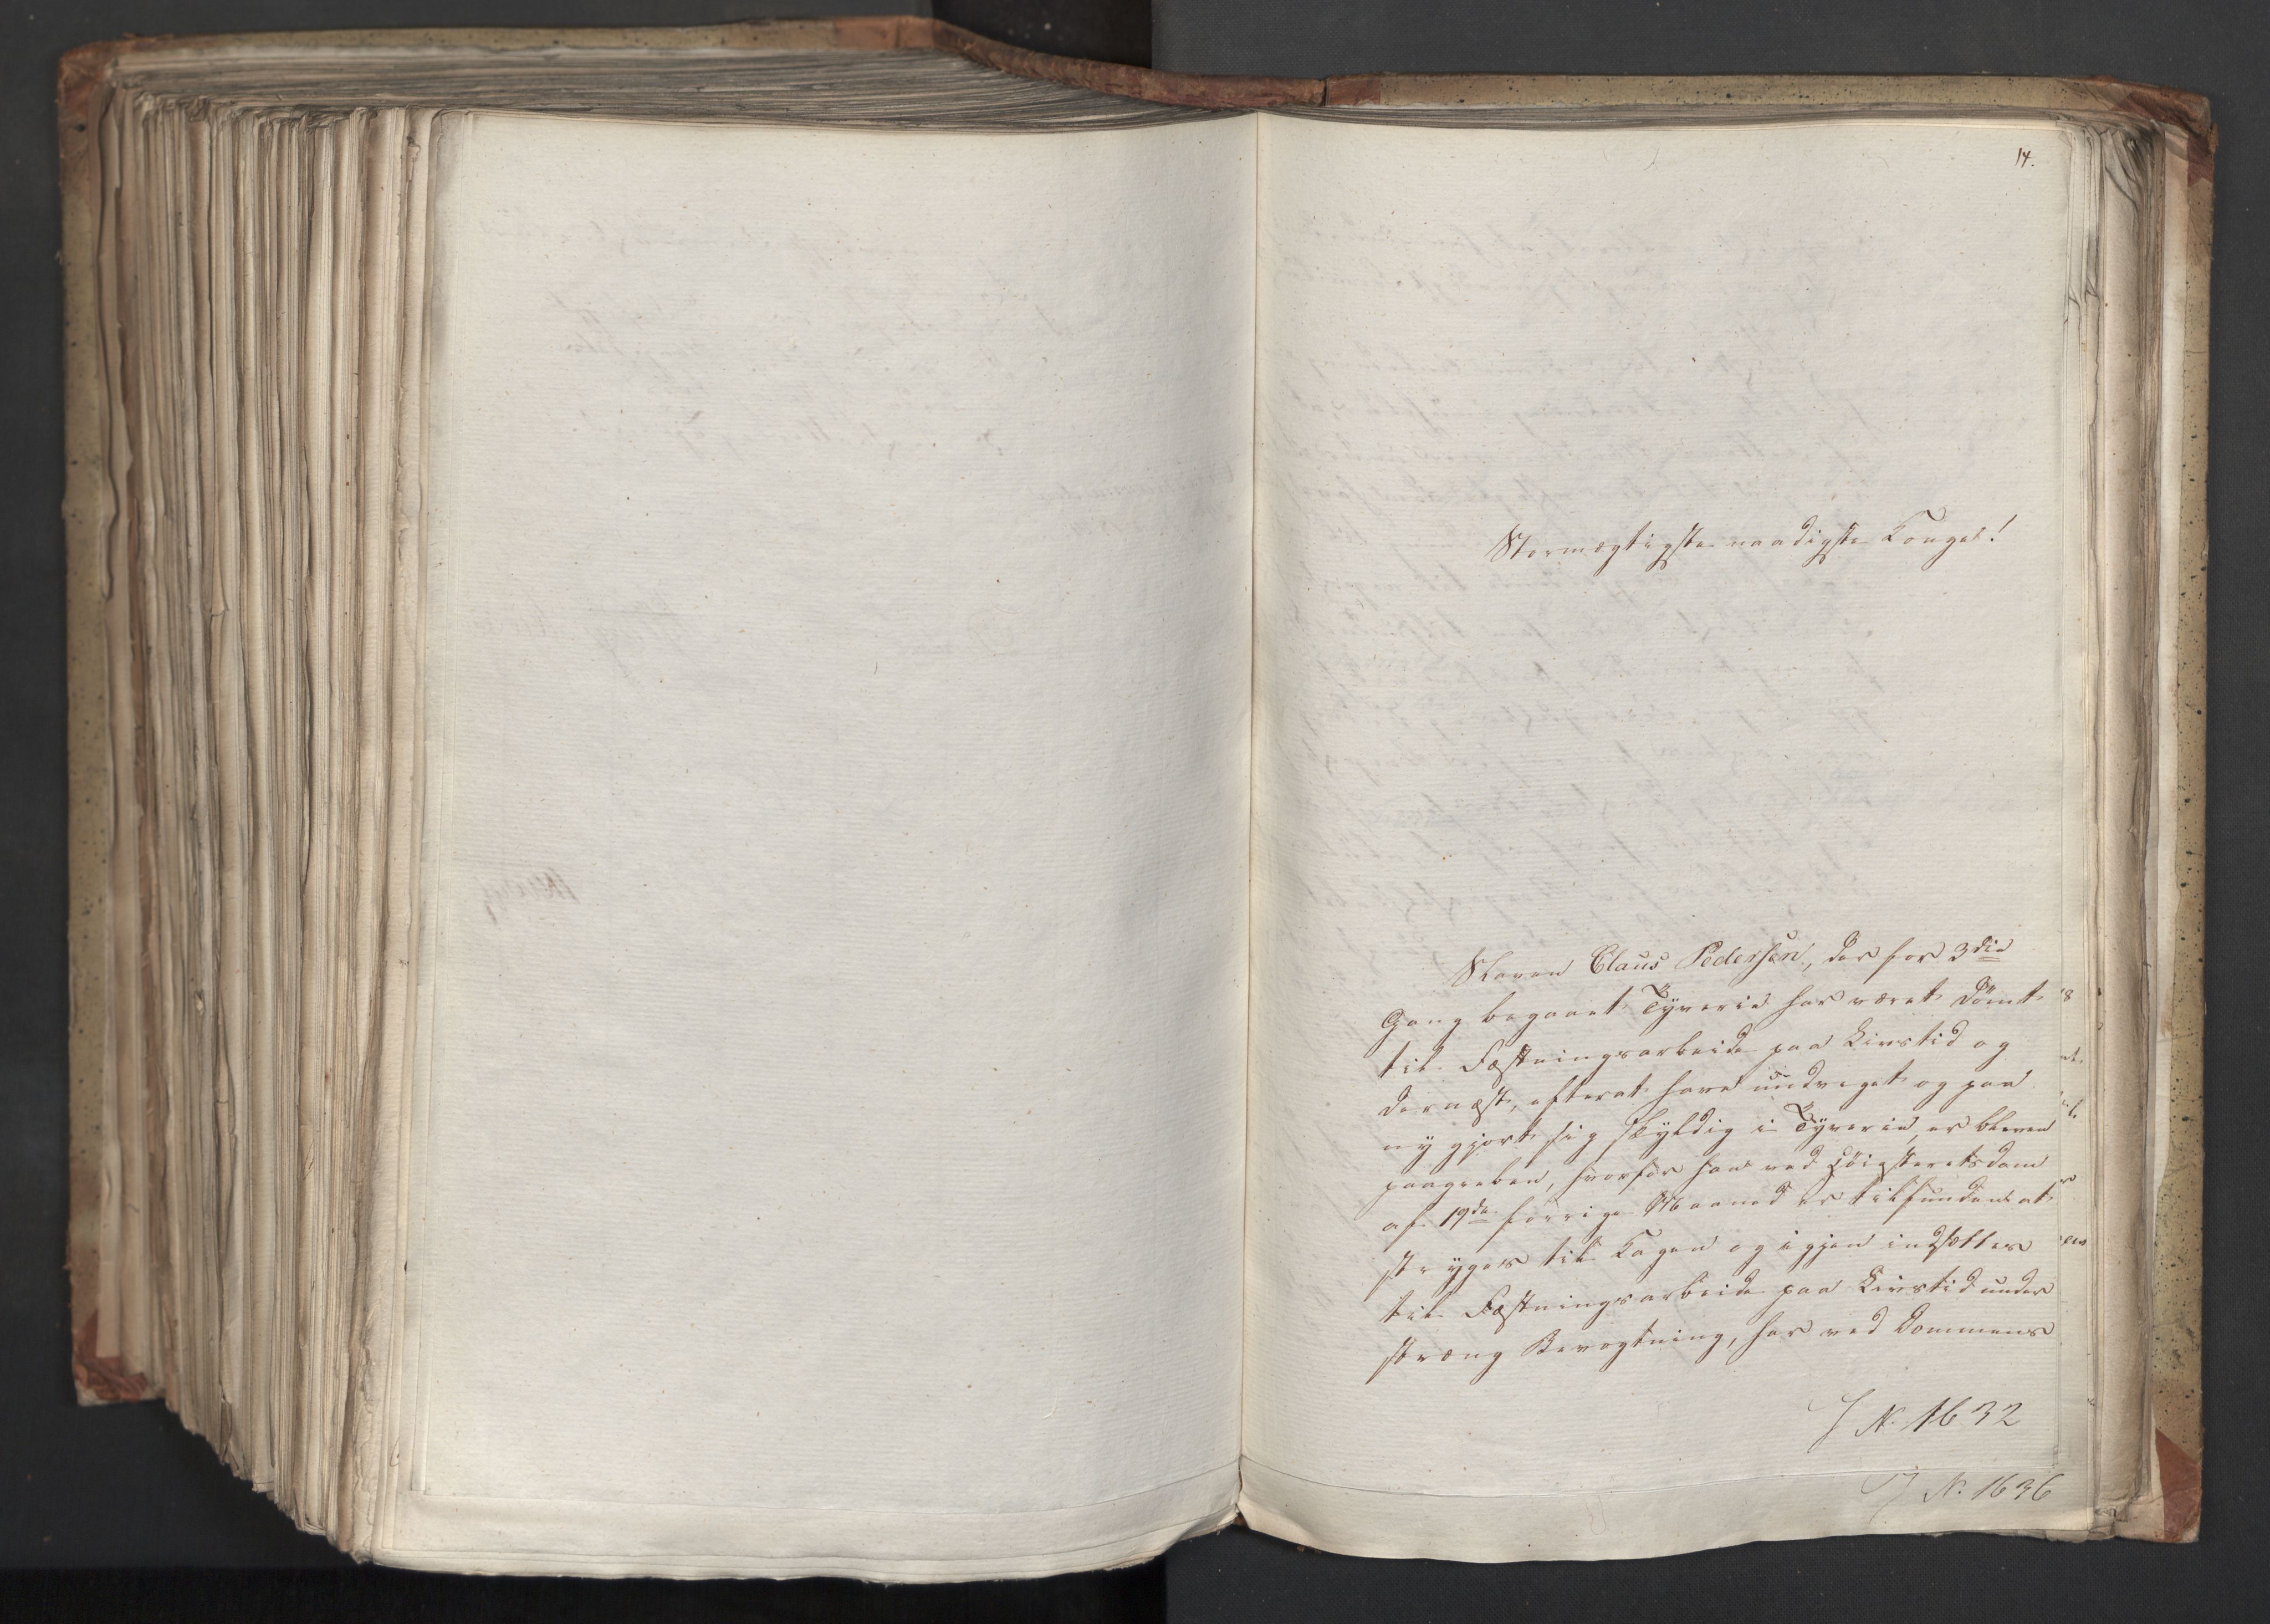 14.
Stormægtigste naadigste Konge!
Slaven Claus Pedersen, der for 3die
Gang begaaet Tyverie har været dömt
til Fæstningsarbeide paa Livstid og
dernæst, efterat have undveget og paa
ny gjort sig skyldig i Tyverie, er bleven
paagreben, hvorfor han ved Höiesteretsdom
af 19de forrige Maaned er tilfunden at
stryges til Kagen og igjen indsættes
til Fæstningsarbeide paa Livstid under
streng Bevogtning, har ved Dommens
J N. 1632
J N. 1636